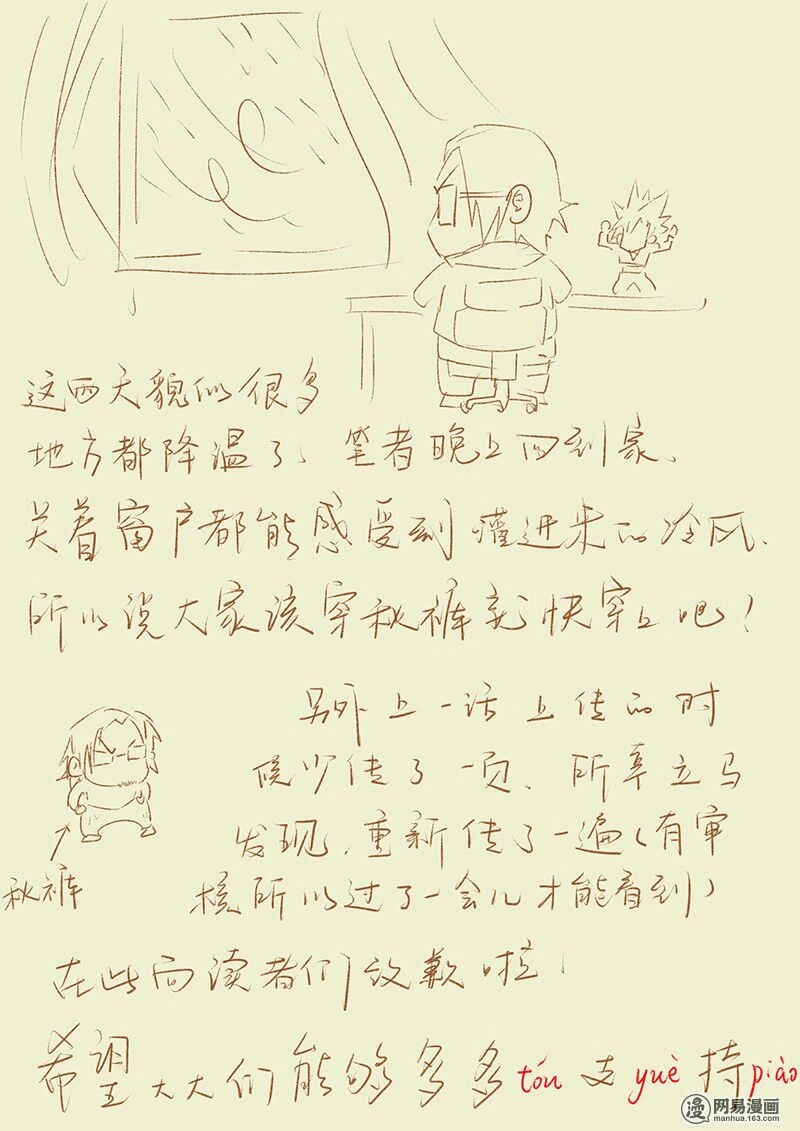 这两天貌似很多
地方都降温了、笔者晚上回到家、
关着窗户都能感受到灌进来的冷风、
所以说大家该穿秋裤就快穿上吧!
另外上一话上传的时
候少传了一页、所幸立马
发现、重新传了一遍(有审
核所以过了一会儿才能看到)
秋裤
在此向读者们致歉啦!
希望大大们能够多多tóu支yuè持piào
漫 网易漫画
manhua.163.com